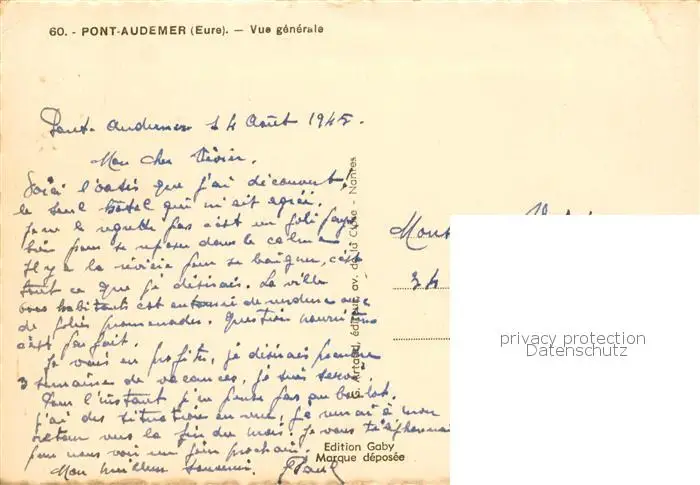 60. - PONT-AUDEMER (Eure). — Vue générale
Pont-Audemer 14 Août 1945.
Mon cher
Voici l'oasis que j'ai découvert,
le seul hotel qui m'ait agréé.
je ne le regrette pas c'est un joli pays
bien pour se reposer dans le calme
Il y a la rivière pour se baigner, c'est
tout ce que je désirais. La ville
habitants est entouré de verdure avec
de jolies promenades. Question nourriture
c'est parfait.
Je vais en profiter, je désirais prendre
3 semaines de vacances, je suis servi
Pour l'instant je ne pense pas au boulot.
j'ai des situations en vue, je verrai à mon
retour vers la fin du mois. Je vous téléphonerai
pour nous voir un jour prochain.
Mon meilleur souvenir. Paul
Artaud, éditeur, av. de la Close - Nantes
Edition Gaby
Marque déposée
34
privacy protection
Datenschutz